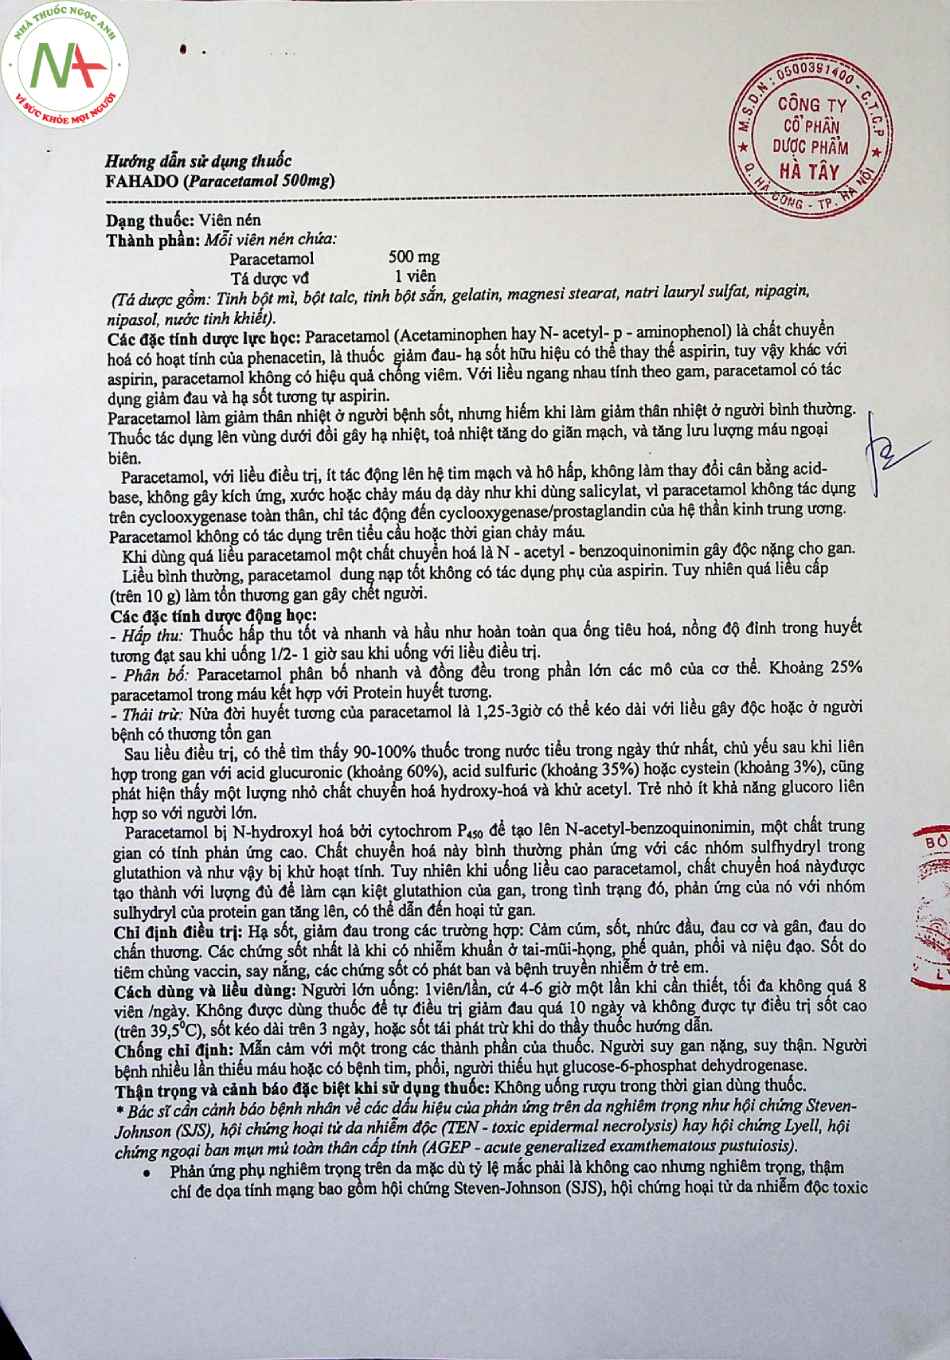 NHÀ THUỐC NGỌC ANH
VÌ SỨC KHỎE MỌI NGƯỜI
M.S.D.N : 0500391400 - C.T.C.P
CÔNG TY
CỔ PHẦN
DƯỢC PHẨM
HÀ TÂY
Q. HÀ ĐÔNG - TP. HÀ NỘI
Hướng dẫn sử dụng thuốc
FAHADO (Paracetamol 500mg)
Dạng thuốc: Viên nén
Thành phần: Mỗi viên nén chứa:
Paracetamol 500 mg
Tá dược vđ 1 viên
(Tá dược gồm: Tinh bột mì, bột talc, tinh bột sắn, gelatin, magnesi stearat, natri lauryl sulfat, nipagin,
nipasol, nước tinh khiết).
Các đặc tính dược lực học: Paracetamol (Acetaminophen hay N- acetyl- p - aminophenol) là chất chuyển
hoá có hoạt tính của phenacetin, là thuốc giảm đau- hạ sốt hữu hiệu có thể thay thế aspirin, tuy vậy khác với
aspirin, paracetamol không có hiệu quả chống viêm. Với liều ngang nhau tính theo gam, paracetamol có tác
dụng giảm đau và hạ sốt tương tự aspirin.
Paracetamol làm giảm thân nhiệt ở người bệnh sốt, nhưng hiếm khi làm giảm thân nhiệt ở người bình thường.
Thuốc tác dụng lên vùng dưới đồi gây hạ nhiệt, toả nhiệt tăng do giãn mạch, và tăng lưu lượng máu ngoại
biên.
Paracetamol, với liều điều trị, ít tác động lên hệ tim mạch và hô hấp, không làm thay đổi cân bằng acid-
base, không gây kích ứng, xước hoặc chảy máu dạ dày như khi dùng salicylat, vì paracetamol không tác dụng
trên cyclooxygenase toàn thân, chỉ tác động đến cyclooxygenase/prostaglandin của hệ thần kinh trung ương.
Paracetamol không có tác dụng trên tiểu cầu hoặc thời gian chảy máu.
Khi dùng quá liều paracetamol một chất chuyển hoá là N - acetyl - benzoquinonimin gây độc nặng cho gan.
Liều bình thường, paracetamol dung nạp tốt không có tác dụng phụ của aspirin. Tuy nhiên quá liều cấp
(trên 10 g) làm tổn thương gan gây chết người.
Các đặc tính dược động học:
- Hấp thu: Thuốc hấp thu tốt và nhanh và hầu như hoàn toàn qua ống tiêu hoá, nồng độ đỉnh trong huyết
tương đạt sau khi uống 1/2- 1 giờ sau khi uống với liều điều trị.
- Phân bố: Paracetamol phân bố nhanh và đồng đều trong phần lớn các mô của cơ thể. Khoảng 25%
paracetamol trong máu kết hợp với Protein huyết tương.
- Thải trừ: Nửa đời huyết tương của paracetamol là 1,25-3giờ có thể kéo dài với liều gây độc hoặc ở người
bệnh có thương tổn gan
Sau liều điều trị, có thể tìm thấy 90-100% thuốc trong nước tiểu trong ngày thứ nhất, chủ yếu sau khi liên
hợp trong gan với acid glucuronic (khoảng 60%), acid sulfuric (khoảng 35%) hoặc cystein (khoảng 3%), cũng
phát hiện thấy một lượng nhỏ chất chuyển hoá hydroxy-hoá và khử acetyl. Trẻ nhỏ ít khả năng glucoro liên
hợp so với người lớn.
Paracetamol bị N-hydroxyl hoá bởi cytochrom P₄₅₀ để tạo lên N-acetyl-benzoquinonimin, một chất trung
gian có tính phản ứng cao. Chất chuyển hoá này bình thường phản ứng với các nhóm sulfhydryl trong
glutathion và như vậy bị khử hoạt tính. Tuy nhiên khi uống liều cao paracetamol, chất chuyển hoá nàyđược
tạo thành với lượng đủ để làm cạn kiệt glutathion của gan, trong tình trạng đó, phản ứng của nó với nhóm
sulhydryl của protein gan tăng lên, có thể dẫn đến hoại tử gan.
Chỉ định điều trị: Hạ sốt, giảm đau trong các trường hợp: Cảm cúm, sốt, nhức đầu, đau cơ và gân, đau do
chấn thương. Các chứng sốt nhất là khi có nhiễm khuẩn ở tai-mũi-họng, phế quản, phổi và niệu đạo. Sốt do
tiêm chủng vaccin, say nắng, các chứng sốt có phát ban và bệnh truyền nhiễm ở trẻ em.
Cách dùng và liều dùng: Người lớn uống: 1viên/lần, cứ 4-6 giờ một lần khi cần thiết, tối đa không quá 8
viên /ngày. Không được dùng thuốc để tự điều trị giảm đau quá 10 ngày và không được tự điều trị sốt cao
(trên 39,5⁰C), sốt kéo dài trên 3 ngày, hoặc sốt tái phát trừ khi do thầy thuốc hướng dẫn.
Chống chỉ định: Mẫn cảm với một trong các thành phần của thuốc. Người suy gan nặng, suy thận. Người
bệnh nhiều lần thiếu máu hoặc có bệnh tim, phổi, người thiếu hụt glucose-6-phosphat dehydrogenase.
Thận trọng và cảnh báo đặc biệt khi sử dụng thuốc: Không uống rượu trong thời gian dùng thuốc.
* Bác sĩ cần cảnh báo bệnh nhân về các dấu hiệu của phản ứng trên da nghiêm trọng như hội chứng Steven-
Johnson (SJS), hội chứng hoại tử da nhiễm độc (TEN - toxic epidermal necrolysis) hay hội chứng Lyell, hội
chứng ngoại ban mụn mủ toàn thân cấp tính (AGEP - acute generalized examthematous pustuiosis).
• Phản ứng phụ nghiêm trọng trên da mặc dù tỷ lệ mắc phải là không cao nhưng nghiêm trọng, thậm
chí đe dọa tính mạng bao gồm hội chứng Steven-Johnson (SJS), hội chứng hoại tử da nhiễm độc toxic